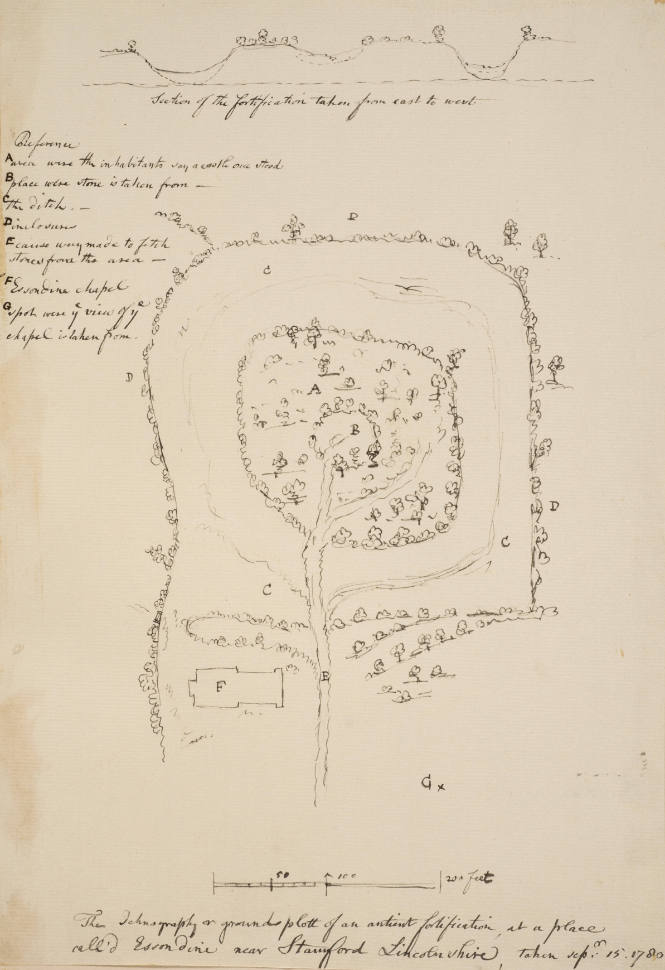 Section of the fortification taken from east to west
Reference
A area were the inhabitants say a castle once stood
B place were stone is taken from —
C the ditch. —
D inclosures
E causeway made to fetch
stones from the area —
F Essondine chapel
G spot were yᵉ view of yᵉ
chapel is taken from.
D
C
D
A
B
D
C
C
B
F
G x
50 100 200 feet
The Ichnography or ground plott of an antient fortification, at a place
call'd Essondine near Stamford Lincolnshire, taken sepʳ. 15. 1780